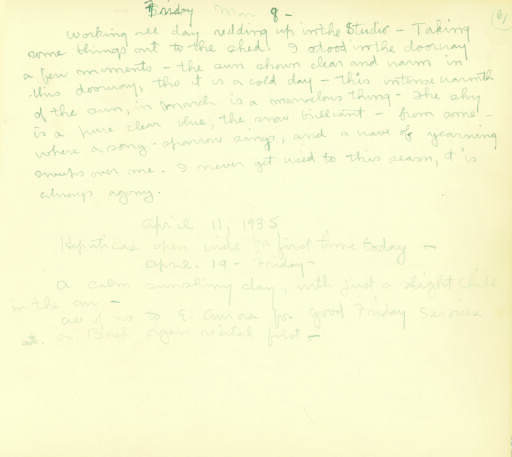 Friday Mar 8 -
61
Working all day redding up in the Studio - Taking
some things out to the shed. I stood in the doorway
a few moments - the sun shown clear and warm in
this doorway, tho it is a cold day - this intense warmth
of the sun, in March is a marvelous thing - The sky
is a pure clear blue, the snow brilliant - from some-
where a song-sparrow sings, and a wave of yearning
sweeps over me. I never get used to this season, it is
always agony.
April 11, 1935
Hepaticas open wide for first time today -
April 19 - Friday -
A calm sunshiny day, with just a slight chill
in the air -
All of us to E. Aurora for Good Friday Services
organ recital first -